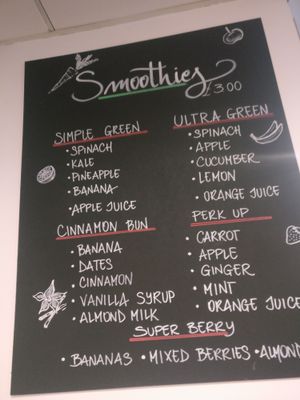 Smoothies
£3.00
SIMPLE GREEN
• SPINACH
• KALE
• PINEAPPLE
• BANANA
• APPLE JUICE
CINNAMON BUN
• BANANA
• DATES
• CINNAMON
• VANILLA SYRUP
• ALMOND MILK
ULTRA GREEN
• SPINACH
• APPLE
• CUCUMBER
• LEMON
• ORANGE JUICE
PERK UP
• CARROT
• APPLE
• GINGER
• MINT
• ORANGE JUICE
SUPER BERRY
• BANANAS • MIXED BERRIES • ALMOND